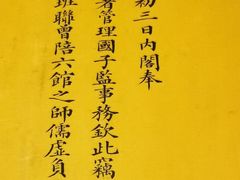 初三日內閣奉
著管理國子監事務欽此竊
班聯曾陪六館之師儒虛負